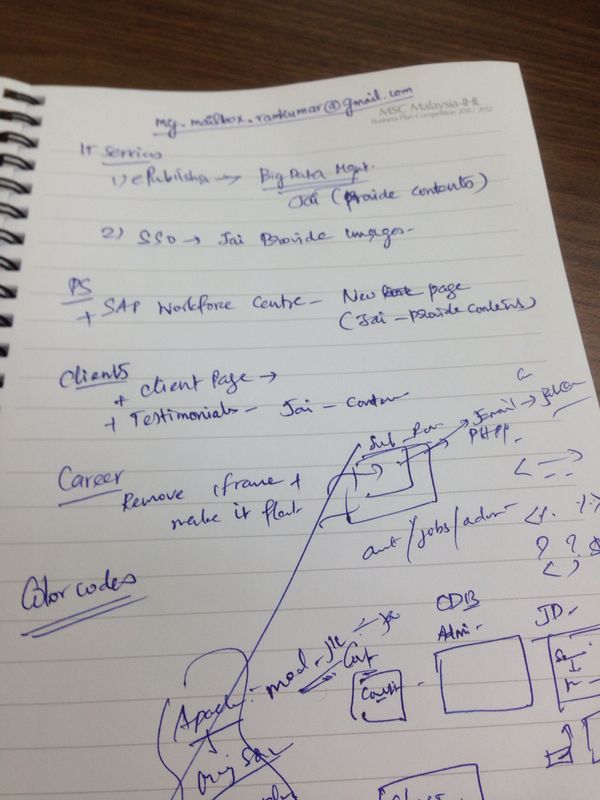 my.mailbox.ramkumar@gmail.com
MSC Malaysia-IHL
Business Plan Competition 2011 / 2012
IT Services
1) ePublisha → Big Data Mgnt.
Jai (Provide contents)
2) SSO → Jai Provide images-
PS
+ SAP Workforce Centre - New page
(Jai - provide contents)
Clients
+ client Page →
+ Testimonials - Jai -
Email →
PHP
Career
Remove iframe +
make it float
/jobs/admi-
Color codes
ODB
Admi-
JD-
mod-jk
Apach